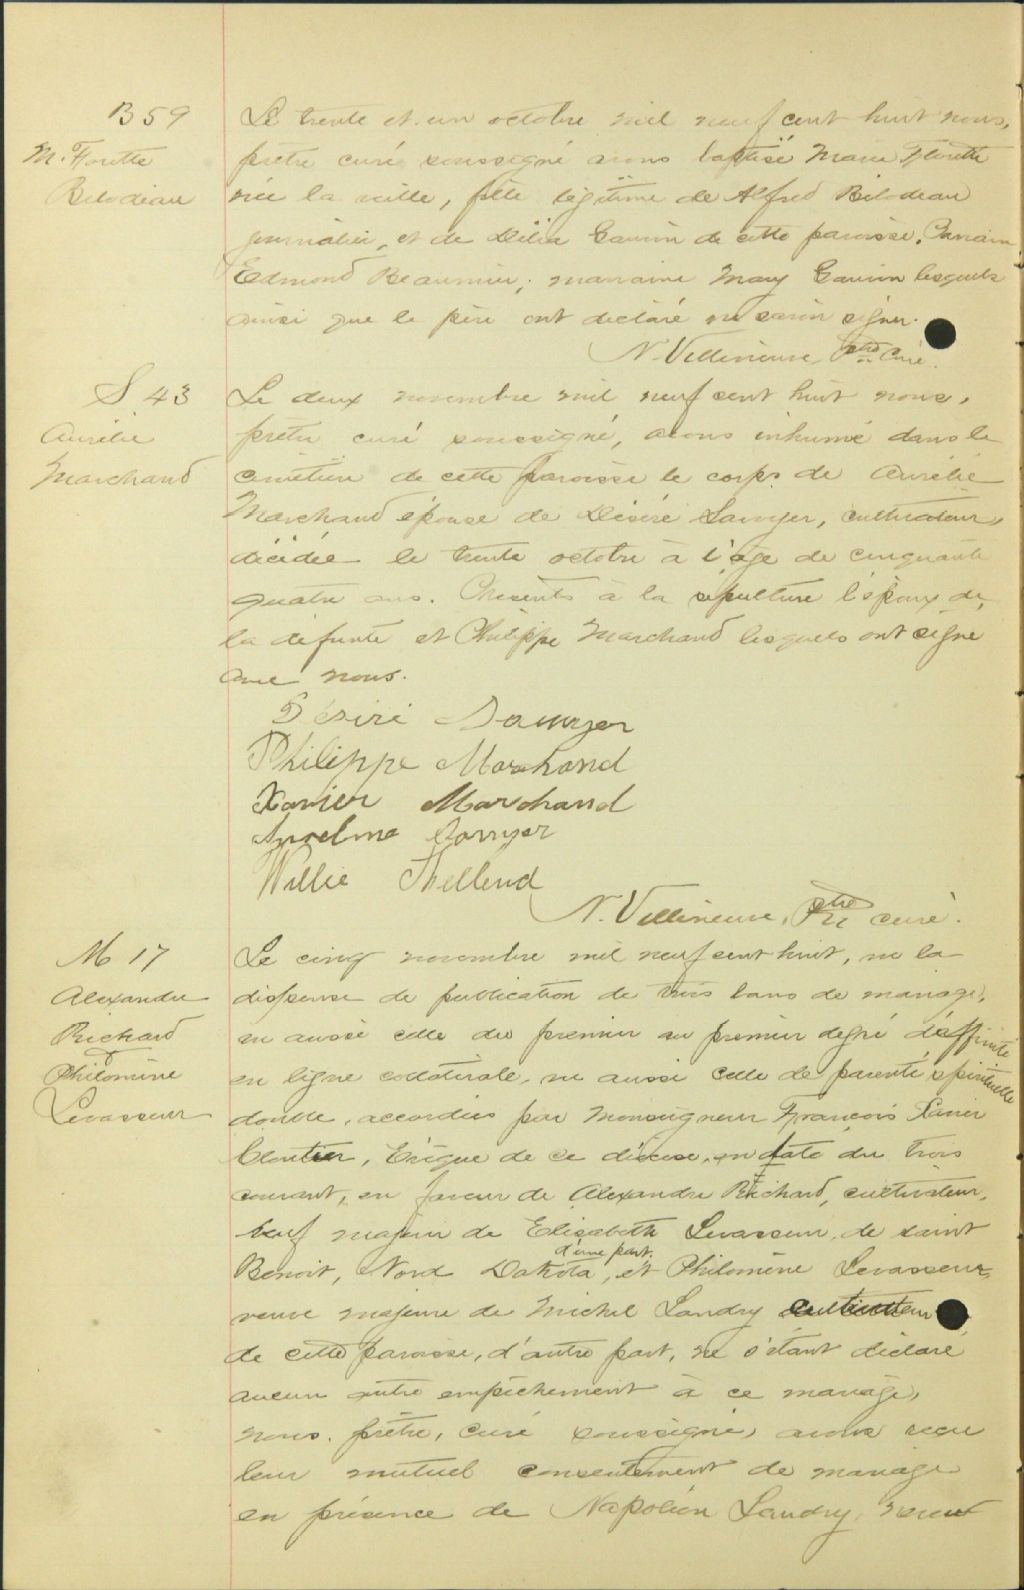 B 59
M. Florette
Bilodeau
Le trente et un octobre mil neuf cent huit nous,
prêtre curé soussigné avons baptisé Marie Florette
née la veille, fille légitime de Alfred Bilodeau
journalier, et de Délia Gauvin de cette paroisse. Parrain
Edmond Beaumier; marraine Mary Gauvin lesquels
ainsi que le père ont déclaré ne savoir signer.
N. Villeneuve Ptre Curé.
S 43
Aurélie
Marchand
Le deux novembre mil neuf cent huit nous,
prêtre curé soussigné, avons inhumé dans le
cimetière de cette paroisse le corps de Aurélie
Marchand épouse de Désiré Sawyer, cultivateur,
décédée le trente octobre à l'âge de cinquante
quatre ans. Présents à la sépulture l'époux de
la defunte et Philippe Marchand lesquels ont signé
avec nous.
Désiré Sawyer
Philippe Marchand
Xavier Marchand
Anselme Sawyer
Willie Thellend
N. Villeneuve, Ptre curé.
M 17
Alexandre
Richard
&
Philomène
Levasseur
Le cinq novembre mil neuf cent huit, vu la
dispense de publication de trois bans de mariage,
vu aussi celle du premier au premier degré d'affinité
en ligne collatérale, vu aussi celle de parenté spirituelle
double, accordées par Monseigneur François Xavier
Cloutier, Evêque de ce diocèse, en date du trois
courant, en faveur de Alexandre Richard, cultivateur,
veuf majeur de Elisabeth Levasseur, de saint
Benoit, Nord Dakota, d'une part. et Philomène Levasseur,
veuve majeure de Michel Landry cultivateur
de cette paroisse, d'autre part, ne s'étant déclaré
aucun autre empêchement à ce mariage,
nous. prêtre, curé soussigné, avons reçu
leur mutuel consentement de mariage
en présence de Napoléon Landry,